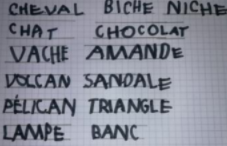 CHEVAL BICHE NICHE
CHAT CHOCOLAT
VACHE AMANDE
VOLCAN SANDALE
PÉLICAN TRIANGLE
LAMPE BANC